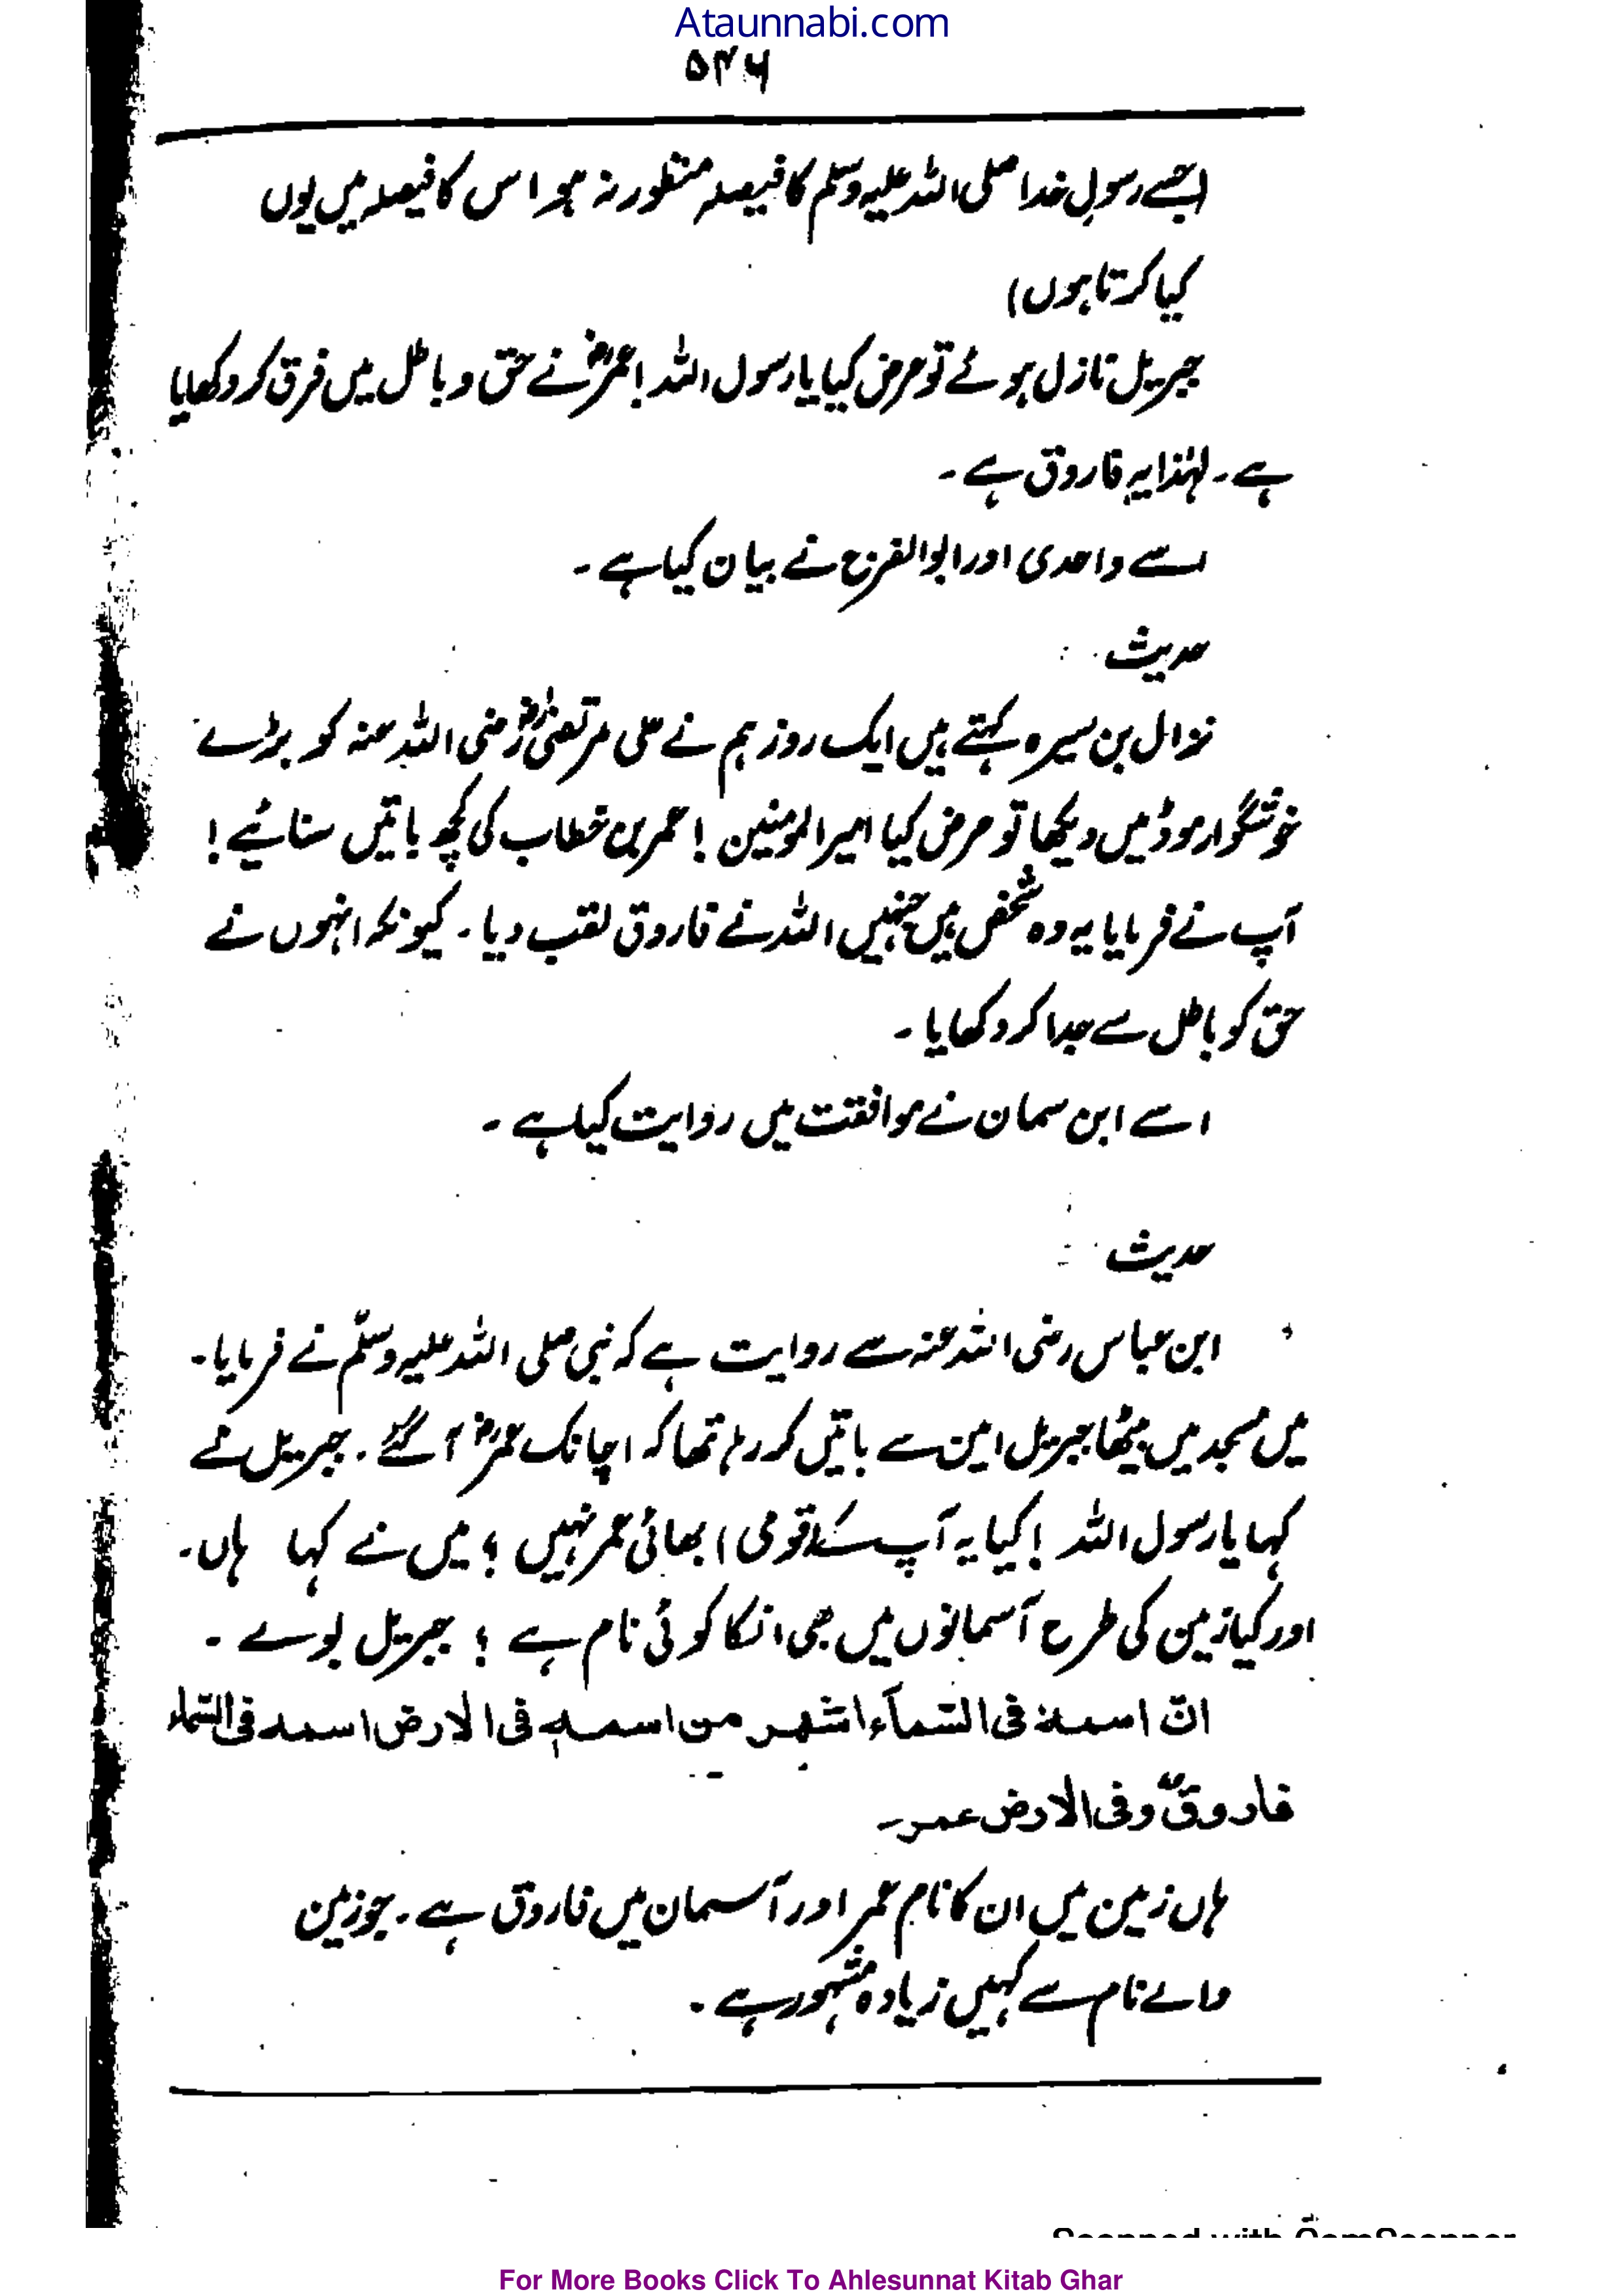 Ataunnabi.com
۵۴۶
(جسے رسولِ خدا صلی اللہ علیہ وسلم کا فیصلہ منظور نہ ہو اس کا فیصلہ میں یوں
کیا کرتا ہوں)
جبریل نازل ہوئے تو عرض کیا یا رسول اللہ! عمرؓ نے حق و باطل میں فرق کر دکھایا
ہے۔ لہٰذا یہ فاروق ہے۔
اسے واحدی اور ابوالفرج نے بیان کیا ہے۔
حدیث :
نزال بن سبرہ کہتے ہیں ایک روز ہم نے علی مرتضیٰؓ رضی اللہ عنہ کو بڑے
خوشگوار موڈ میں دیکھا تو عرض کیا امیر المومنین! عمر بن خطاب کی کچھ باتیں سنائیے!
آپ نے فرمایا یہ وہ شخص ہیں جنہیں اللہ نے فاروق لقب دیا۔ کیونکہ انہوں نے
حق کو باطل سے جدا کر دکھایا۔
اسے ابن سمان نے موافقت میں روایت کیا ہے۔
حدیث :
ابن عباس رضی اللہ عنہ سے روایت ہے کہ نبی صلی اللہ علیہ وسلّم نے فرمایا۔
میں مسجد میں بیٹھا جبریل امین سے باتیں کر رہا تھا کہ اچانک عمرؓ آ گئے۔ جبریل نے
کہا یا رسول اللہ! کیا یہ آپ کے (قومی) بھائی عمر نہیں؟ میں نے کہا ہاں۔
اور کیا زمین کی طرح آسمانوں میں بھی انکا کوئی نام ہے؟ جبریل بولے۔
انّ اسمہ فی السّمآء اشہر من اسمہٖ فی الارض اسمہ فی السّماء
فاروقٌ وفی الارض عمر۔
ہاں زمین میں ان کا نام عمر اور آسمان میں فاروق ہے۔ جو زمین
والے نام سے کہیں زیادہ مشہور ہے۔
Scanned with CamScanner
For More Books Click To Ahlesunnat Kitab Ghar